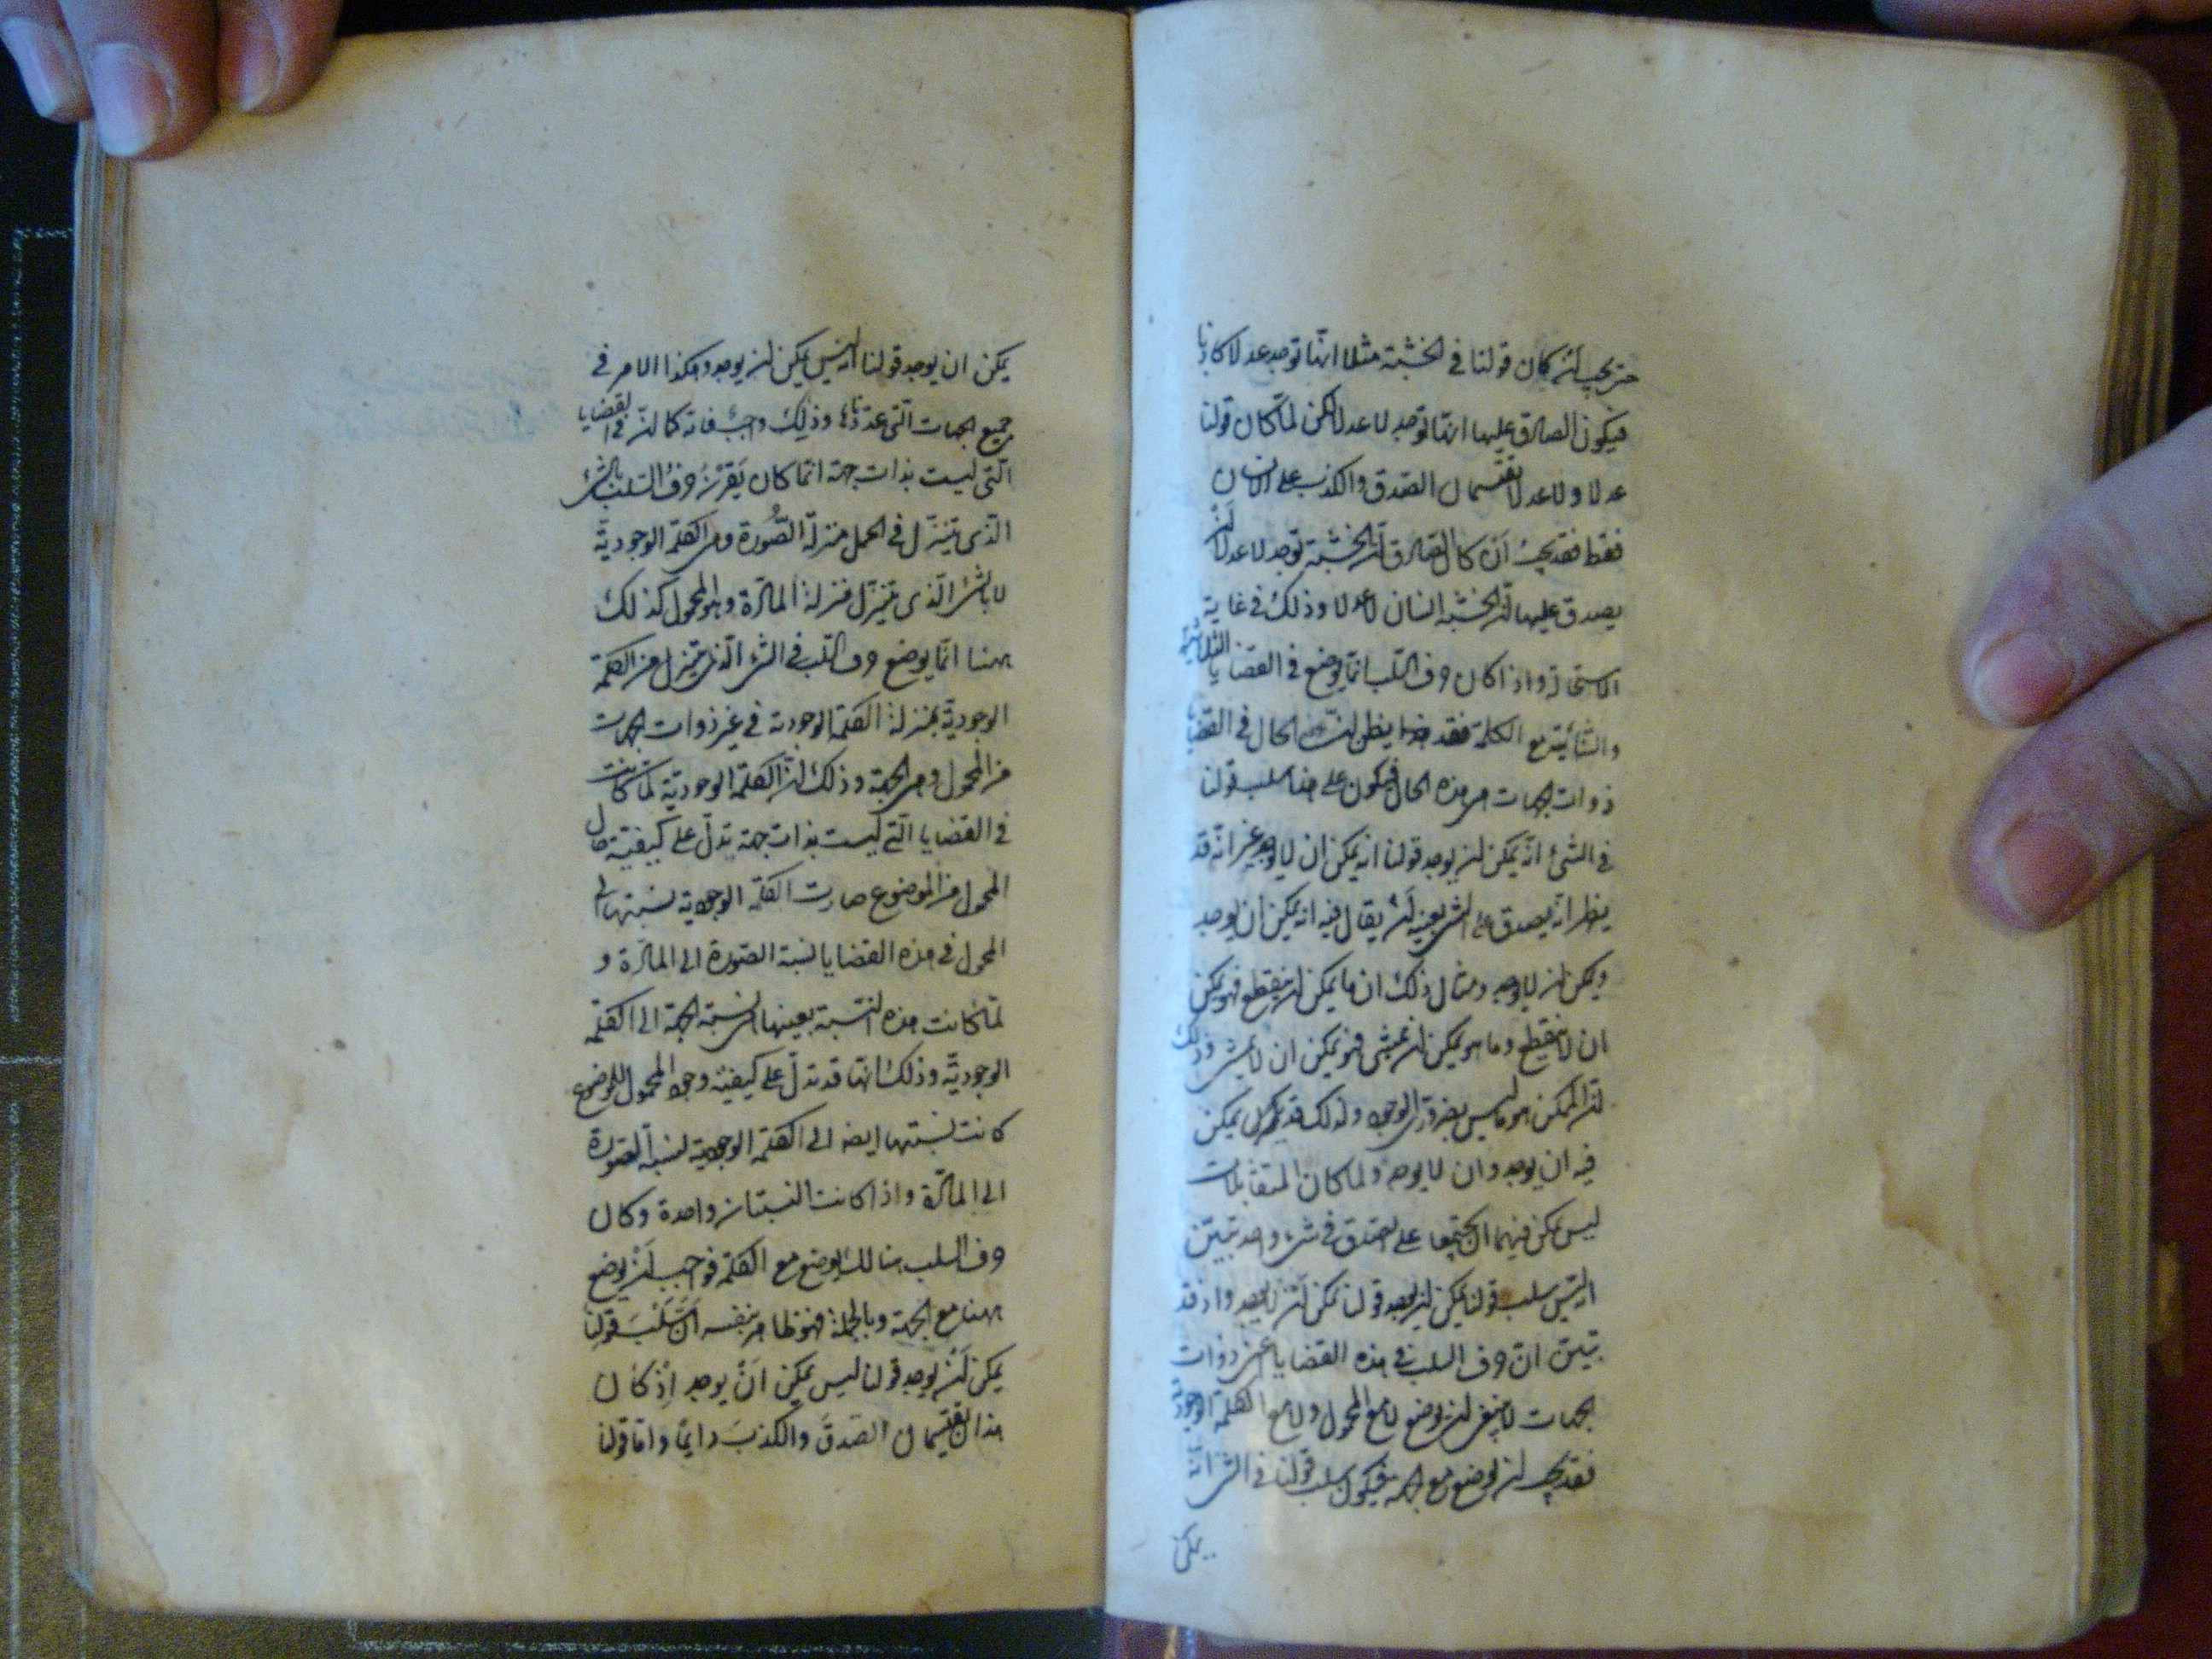 حتى يجب ان كان قولنا في الخشبة مثلا انها توجد عدلا كاذبا
فيكون الصادق عليها انها توجد لا عدلا لكن لما كان قولنا
عدلا ولا عدلا يقتسمان الصدق والكذب على الانسان
فقط فقد يجب ان كان الصادق ان الخشبة توجد لا عدلا ان
يصدق عليها ان الخشبة انسان لا عدلا وذلك في غاية
الاستحالة واذا كان حرف السلب انما يوضع في القضايا الثلاثية
والثنائية مع الكلمة فقد يظن ان الحال في القضايا
ذوات الجهات هي هذه الحال فيكون على هذا سلب قولنا
في الشئ انه يمكن ان يوجد قولنا انه يمكن ان لا يوجد غير انه قد
يظهر انه يصدق على الشئ بعينه ان يقال فيه انه يمكن ان يوجد
ويمكن ان لا يوجد ومثال ذلك ان ما يمكن ان ينقطع فهو يمكن
ان لا ينقطع وما هو يمكن ان يمشى فهو يمكن ان لا يمشى وذلك
ان الممكن هو ما ليس بضروري الوجود ولذلك قد يمكن
فيه ان يوجد وان لا يوجد ولما كان المتقابلات
ليس يمكن فيهما ان يجتمعا على الصدق في شئ واحد تبين
انه ليس سلب قولنا يمكن ان يوجد قولنا يمكن ان لا يوجد واذ قد
تبين ان حرف السلب في هذه القضايا عنى ذوات
الجهات لا ينبغي ان يوضع لا مع المحمول ولا مع الكلمة الوجودية
فقد يجب ان يوضع مع الجهة فيكون سلب قولنا في الشئ انه
يمكن
يمكن ان يوجد قولنا انه ليس يمكن ان يوجد وهكذا الامر في
جميع الجهات التي عددناها وذلك واجب فانه كما ان في القضايا
التي ليست بذات جهة انما كان يقرن حرف السلب بالشئ
الذى يتنزل في الحمل منزلة الصورة وهي الكلمة الوجودية
لا بالشئ الذى يتنزل منزلة المادة وهو المحمول كذلك
ههنا انما يوضع حرف السلب في الشئ الذى يتنزل من الكلمة
الوجودية بمنزلة الكلمة الوجودية في غير ذوات الجهات
من المحمول وهي الجهة وذلك ان الكلمة الوجودية لما كانت
في القضايا التي ليست بذات جهة تدل على كيفية حال
المحمول من الموضوع صارت الكلمة الوجودية نسبتها الى
المحمول في هذه القضايا نسبة الصورة الى المادة و
لما كانت هذه النسبة بعينها هي نسبة الجهة الى الكلمة
الوجودية وذلك انها قد تدل على كيفية وجود المحمول للموضوع
كانت نسبتها ايضه الى الكلمة الوجودية نسبة الصورة
الى المادة واذا كانت النسبتان واحدة وكان
حرف السلب هنالك يوضع مع الكلمة فواجب ان يوضع
ههنا مع الجهة وبالجملة فهو ظاهر بنفسه ان سلب قولنا
يمكن ان يوجد قولنا ليس يمكن ان يوجد اذ كان
هذان يقتسمان الصدق والكذب دايما واما قولنا